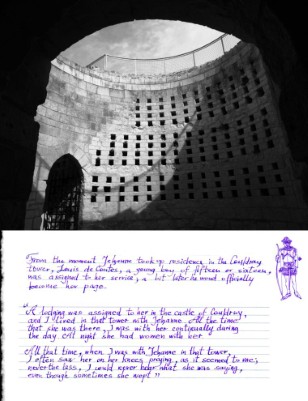 From the moment Jehanne took up residence in the Couldray
tower, Louis de Contes, a young boy of fifteen or sixteen,
was assigned to her service, a bit later he would officially
become her page.
"A lodging was assigned to her in the castle of Couldray,
and I lived in that tower with Jehanne. All the time
that she was there, I was with her continually during
the day. All night she had women with her."
All that time, when I was with Jehanne in that tower,
I often saw her on her knees praying, as it seemed to me;
nevertheless, I could never hear what she was saying,
even though sometimes she wept."